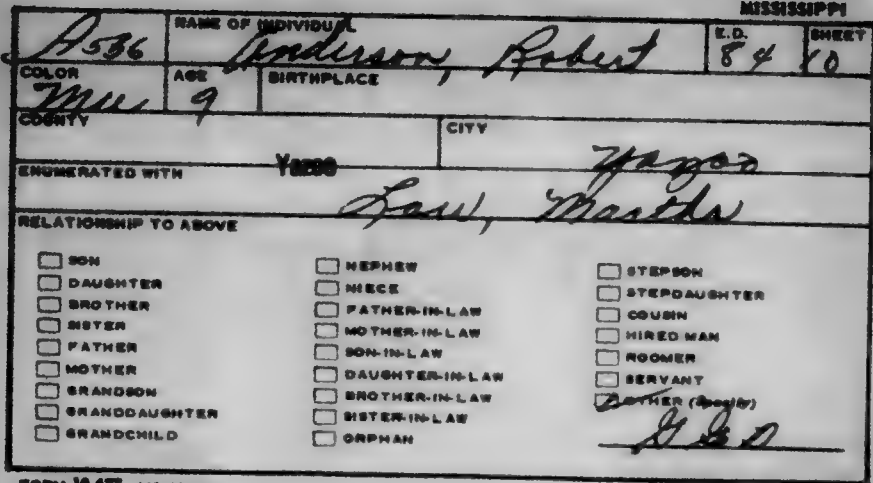 MISSISSIPPI
A536 NAME OF INDIVIDUAL Anderson, Robert E.D. 84 SHEET 10
COLOR Mu AGE 9 BIRTHPLACE
COUNTY Yazoo CITY Yazoo
ENUMERATED WITH
Martha
RELATIONSHIP TO ABOVE
SON
DAUGHTER
BROTHER
SISTER
FATHER
MOTHER
GRANDSON
GRANDDAUGHTER
GRANDCHILD
NEPHEW
NIECE
FATHER-IN-LAW
MOTHER-IN-LAW
SON-IN-LAW
DAUGHTER-IN-LAW
BROTHER-IN-LAW
SISTER-IN-LAW
ORPHAN
STEPSON
STEPDAUGHTER
COUSIN
HIRED MAN
ROOMER
SERVANT
OTHER (Specify)
FORM